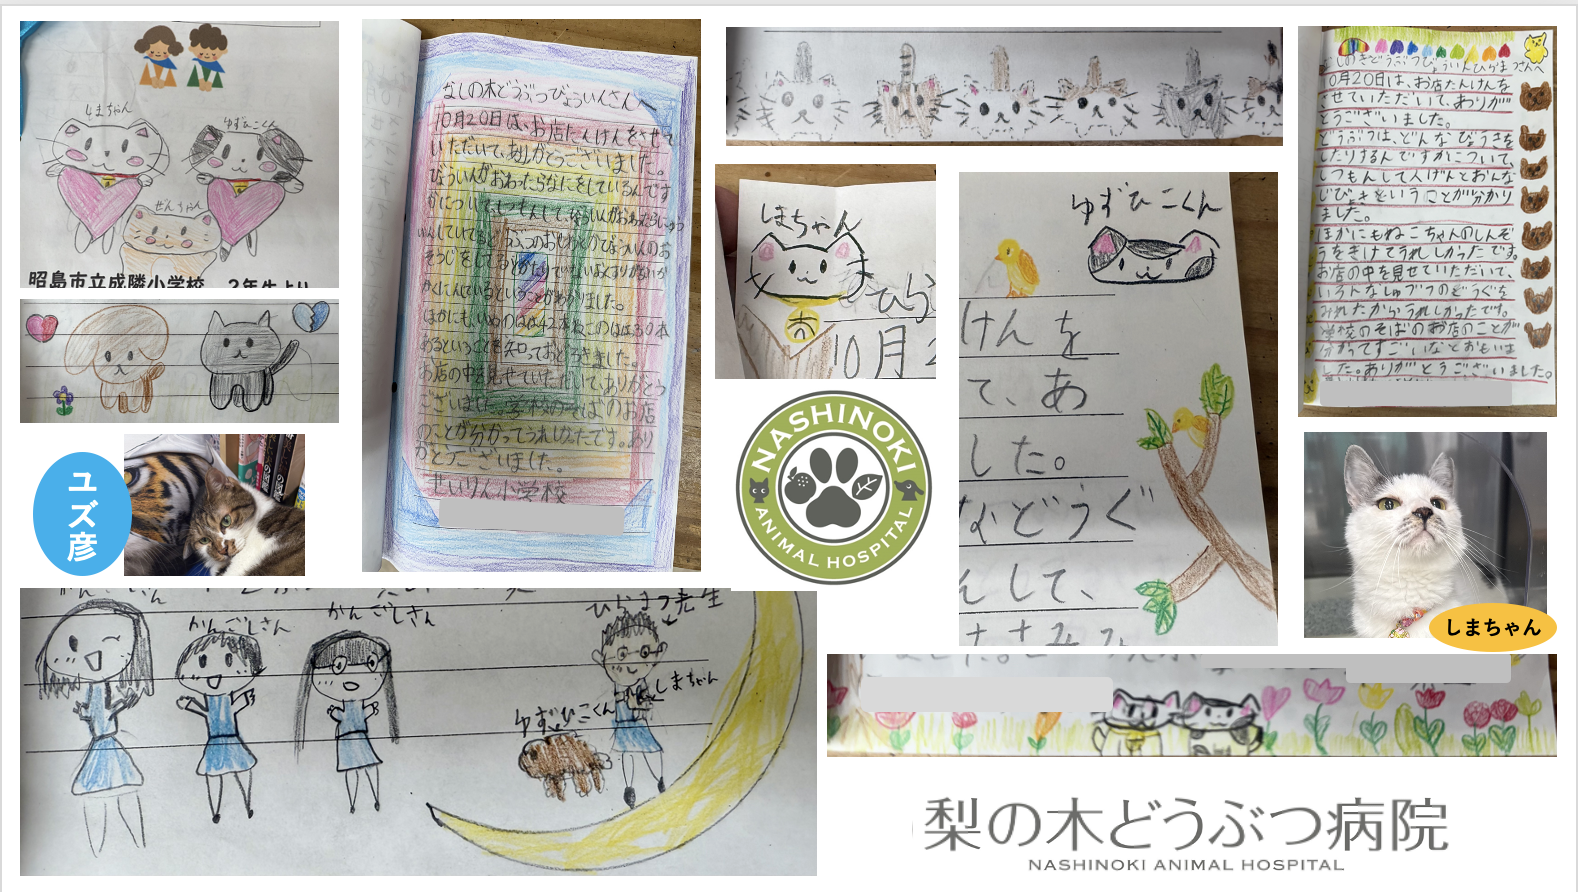 しまちゃん
ゆずひこくん
ぜんちゃん
昭島市立成隣小学校 2年生より
なしの木どうぶつびょういんさんへ
10月20日は、お店たんけんをさせて
いただいて、ありがとうございました。
びょういんがおわったらなにをしているんです
かについてしつもんして、
ほかにも、いぬのはは42本ねこのはは30本
あるということを知っておどろきました。
お店の中を見せていただいて、ありがとう
ございました。学校のそばのお店
のことが分かってうれしかったです。あり
がとうございました。
せいりん小学校
しまちゃん
ひら
10月2
ゆずひこくん
けんを
て、あ
した。
などうぐ
んして、
10月20日は、お店たんけんを
させていただいて、ありが
とうございました。
どうぶつは、どんなびょうきを
したりするんですかについて、
しつもんして人げんとおんな
じびょうきということが分かり
ました。
ほかにもねこちゃんのしんぞ
うをきけてうれしかったです。
お店の中を見せていただいて、
いろんなしゅるいのどうぐを
みれたからうれしかったです。
学校のそばのお店のことが
分かってすごいなとおもいま
した。ありがとうございました。
ユズ彦
NASHINOKI
ANIMAL HOSPITAL
しまちゃん
かんごしさん
かんごしさん
ひらまつ先生
しまちゃん
ゆずひこくん
梨の木どうぶつ病院
NASHINOKI ANIMAL HOSPITAL